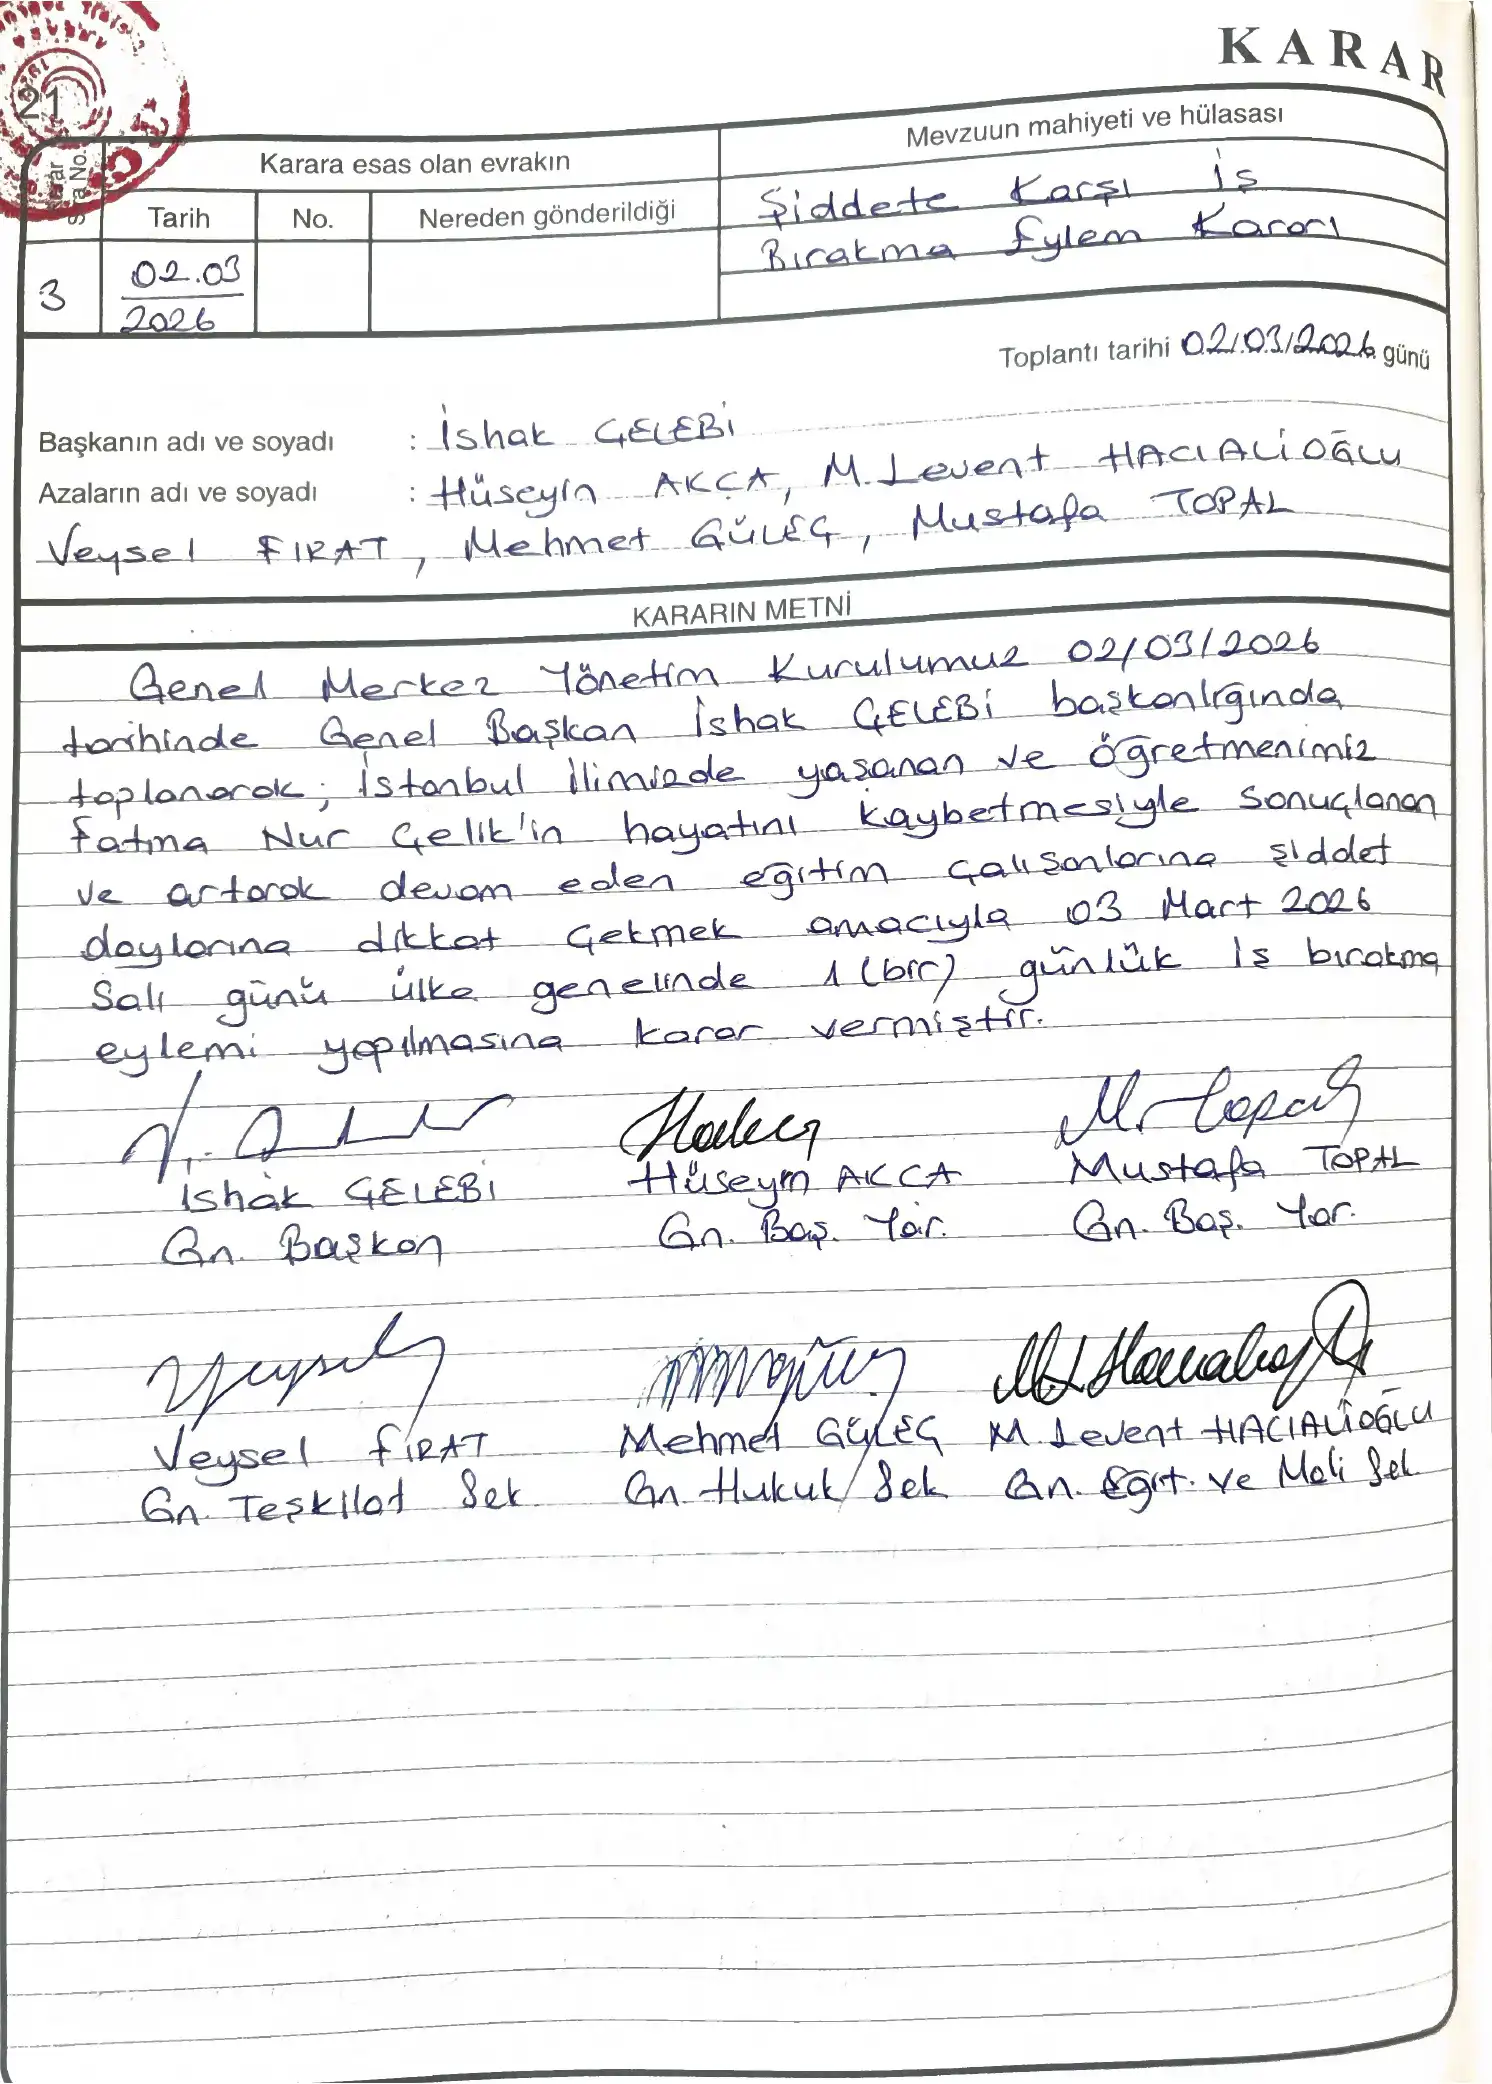 KARAR
21
Karara esas olan evrakın
Mevzuun mahiyeti ve hülasası
Sıra No.
Tarih
No.
Nereden gönderildiği
Şiddete Karşı İş
Bırakma Eylem Kararı
3
02.03
2026
Toplantı tarihi 02/03/2026 günü
Başkanın adı ve soyadı : İshak ÇELEBİ
Azaların adı ve soyadı : Hüseyin AKCA, M. Levent HACIALİOĞLU
Veysel FIRAT, Mehmet GÜLEÇ, Mustafa TOPAL
KARARIN METNİ
Genel Merkez Yönetim Kurulumuz 02/03/2026
tarihinde Genel Başkan İshak ÇELEBİ başkanlığında
toplanarak; İstanbul ilimizde yaşanan ve öğretmenimiz
Fatma Nur Çelik'in hayatını kaybetmesiyle sonuçlanan
ve artarak devam eden eğitim çalışanlarına şiddet
olaylarına dikkat çekmek amacıyla 03 Mart 2026
Salı günü ülke genelinde 1 (bir) günlük iş bırakma
eylemi yapılmasına karar vermiştir.
M. Topal
İshak ÇELEBİ
Hüseyin AKCA
Mustafa TOPAL
Gn. Başkan
Gn. Baş. Yar.
Gn. Baş. Yar.
Veysel FIRAT
Mehmet GÜLEÇ
M. Levent HACIALİOĞLU
Gn. Teşkilat Sek
Gn. Hukuk Sek
Gn. Eğit. ve Mali Sek.